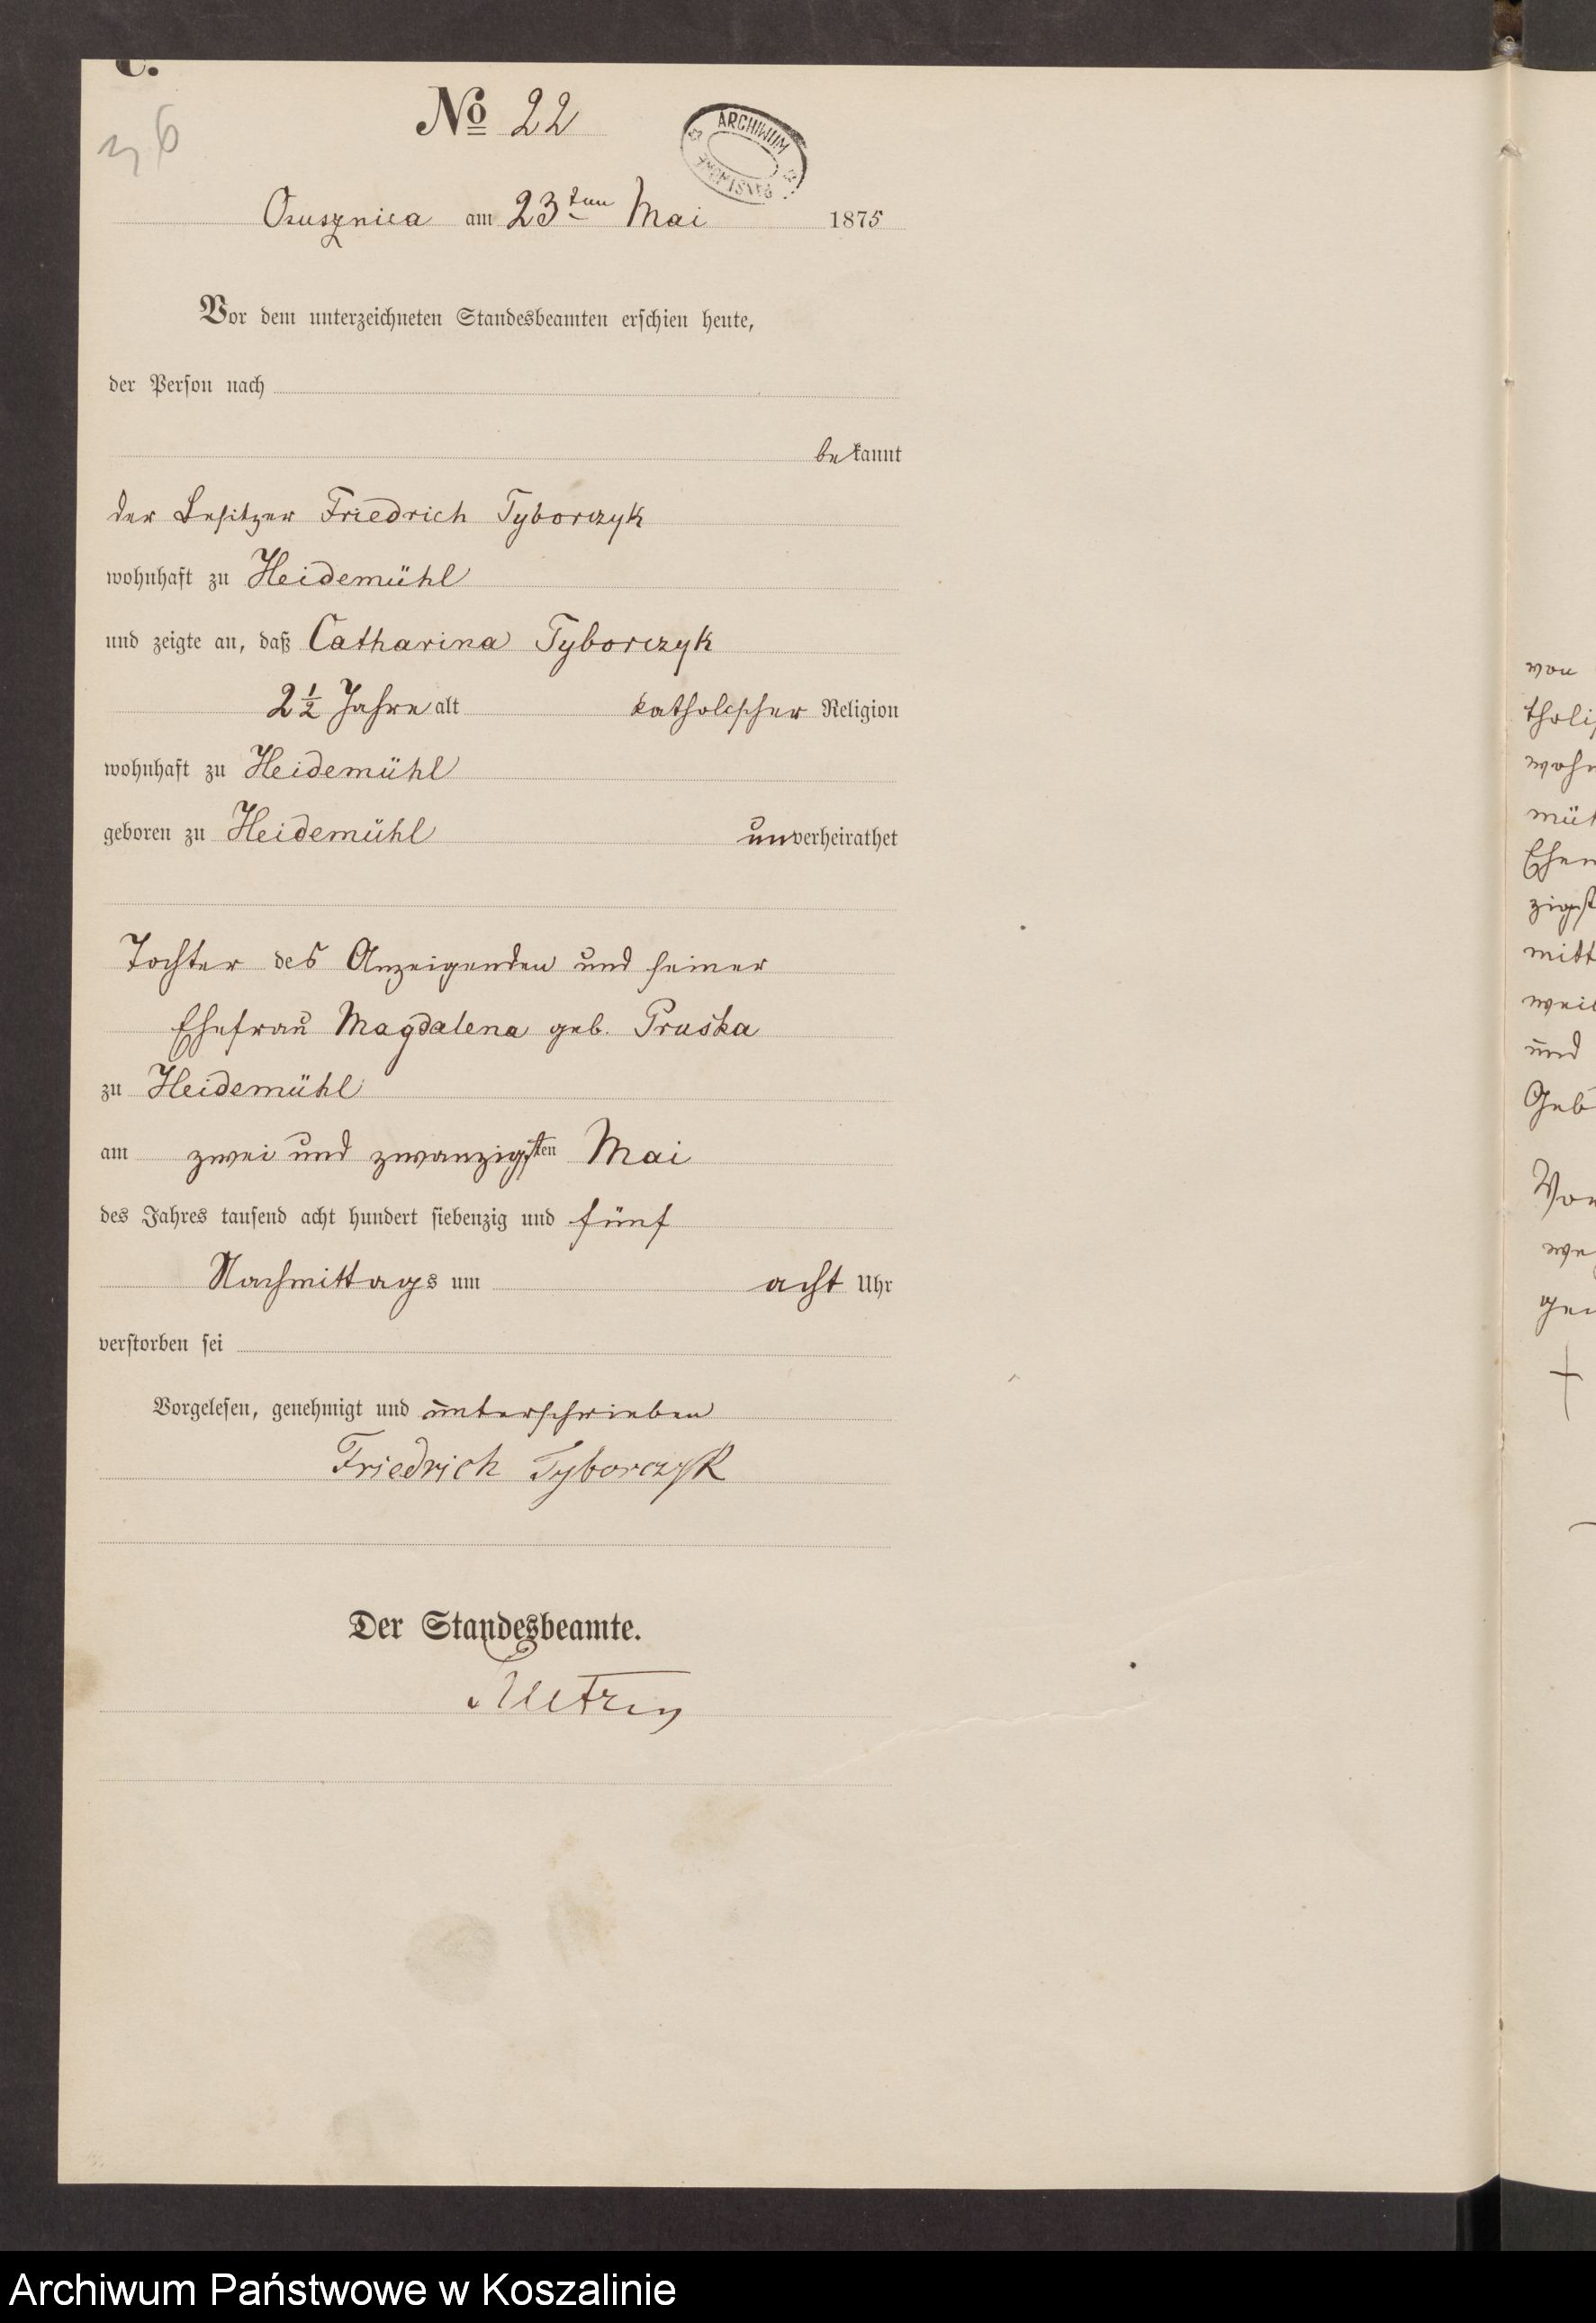 C.
No 22
36
ARCHIWUM PAŃSTWOWE
Osusznica am 23ten Mai 1875
Vor dem unterzeichneten Standesbeamten erschien heute,
der Person nach
bekannt
der Besitzer Friedrich Tyborczyk
wohnhaft zu Heidemühl
und zeigte an, daß Catharina Tyborczyk
2½ Jahre alt katholischer Religion
wohnhaft zu Heidemühl
geboren zu Heidemühl unverheirathet
Tochter des Anzeigenden und seiner
Ehefrau Magdalena geb. Pruska
zu Heidemühl
am zwei und zwanzigsten Mai
des Jahres tausend acht hundert siebenzig und fünf
Nachmittags um acht Uhr
verstorben sei
Vorgelesen, genehmigt und unterschrieben
Friedrich Tyborczyk
Der Standesbeamte.
von
tholi
wohn
müh
Ehen
zigst
mitt
weil
und
Geb
Vor
ge
Archiwum Państwowe w Koszalinie